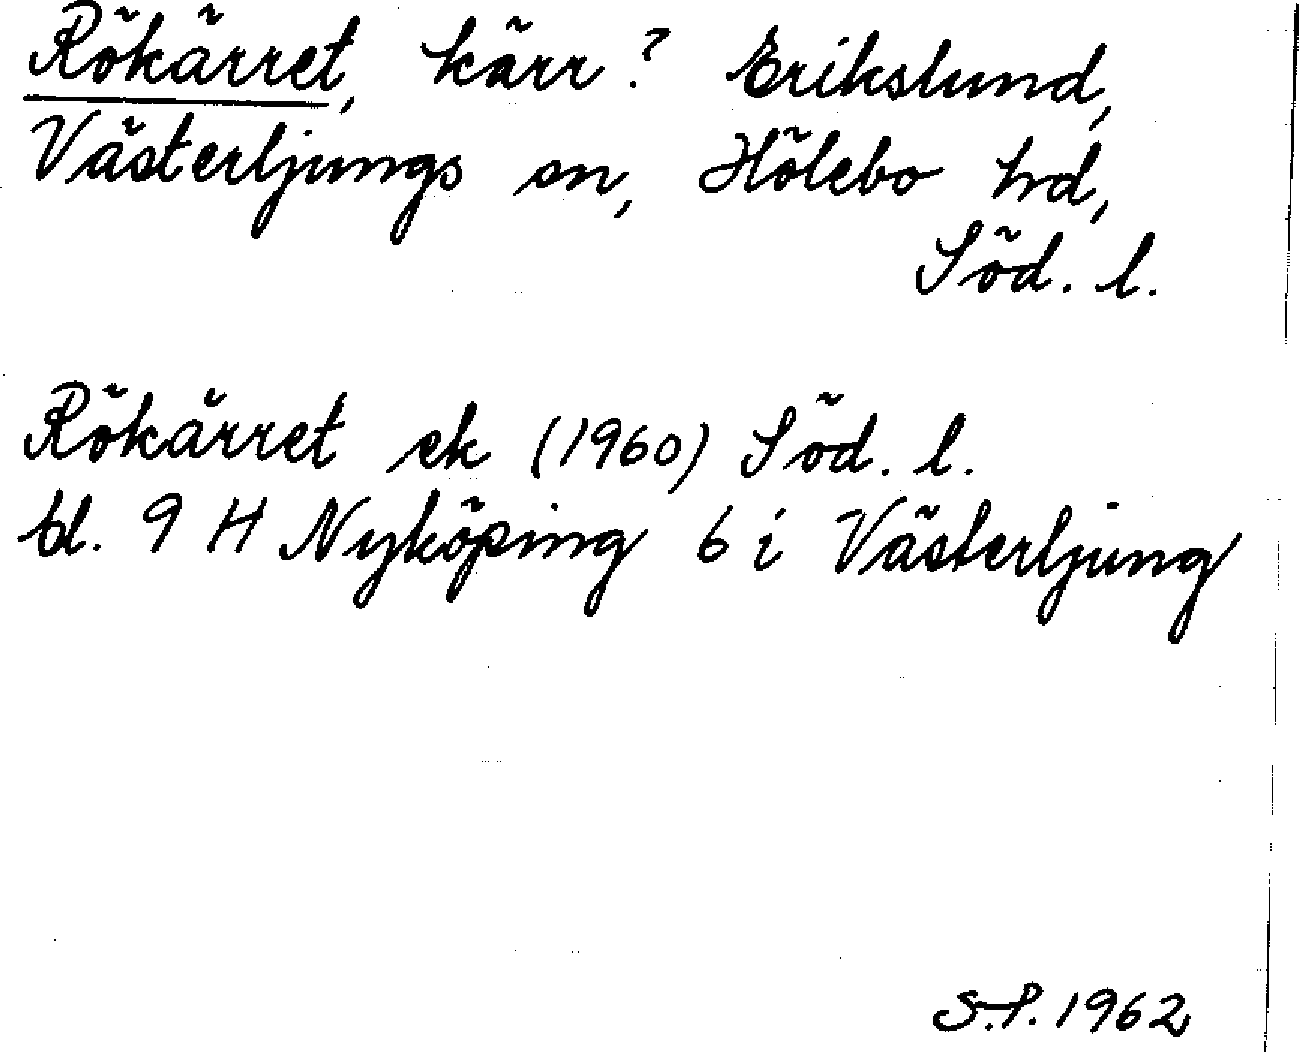 Rökärret, kärr? Erikslund,
Västerljungs sn, Hölebo hd,
Söd. l.
Rökärret ek (1960) Söd. l.
bl. 9 H Nyköping 6 i Västerljung
S.P. 1962